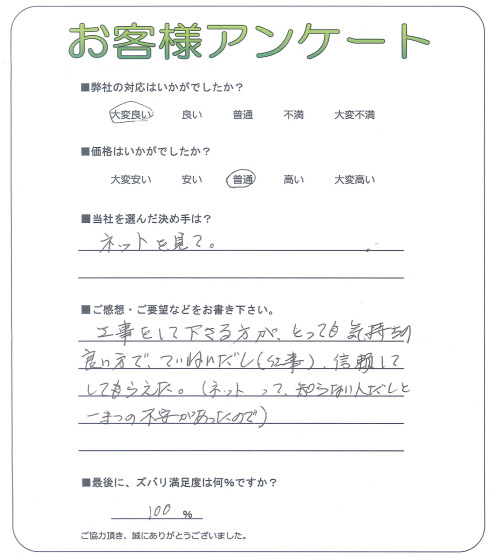 お客様アンケート
■弊社の対応はいかがでしたか？
大変良い 良い 普通 不満 大変不満
■価格はいかがでしたか？
大変安い 安い 普通 高い 大変高い
■当社を選んだ決め手は？
ネットを見て。
■ご感想・ご要望などをお書き下さい。
工事をして下さる方が、とっても気持ち
良い方で、ていねいだし(仕事)、信頼して
してもらえた。(ネットって、知らない人だしと
一つの不安があったので)
■最後に、ズバリ満足度は何％ですか？
100 %
ご協力頂き、誠にありがとうございました。